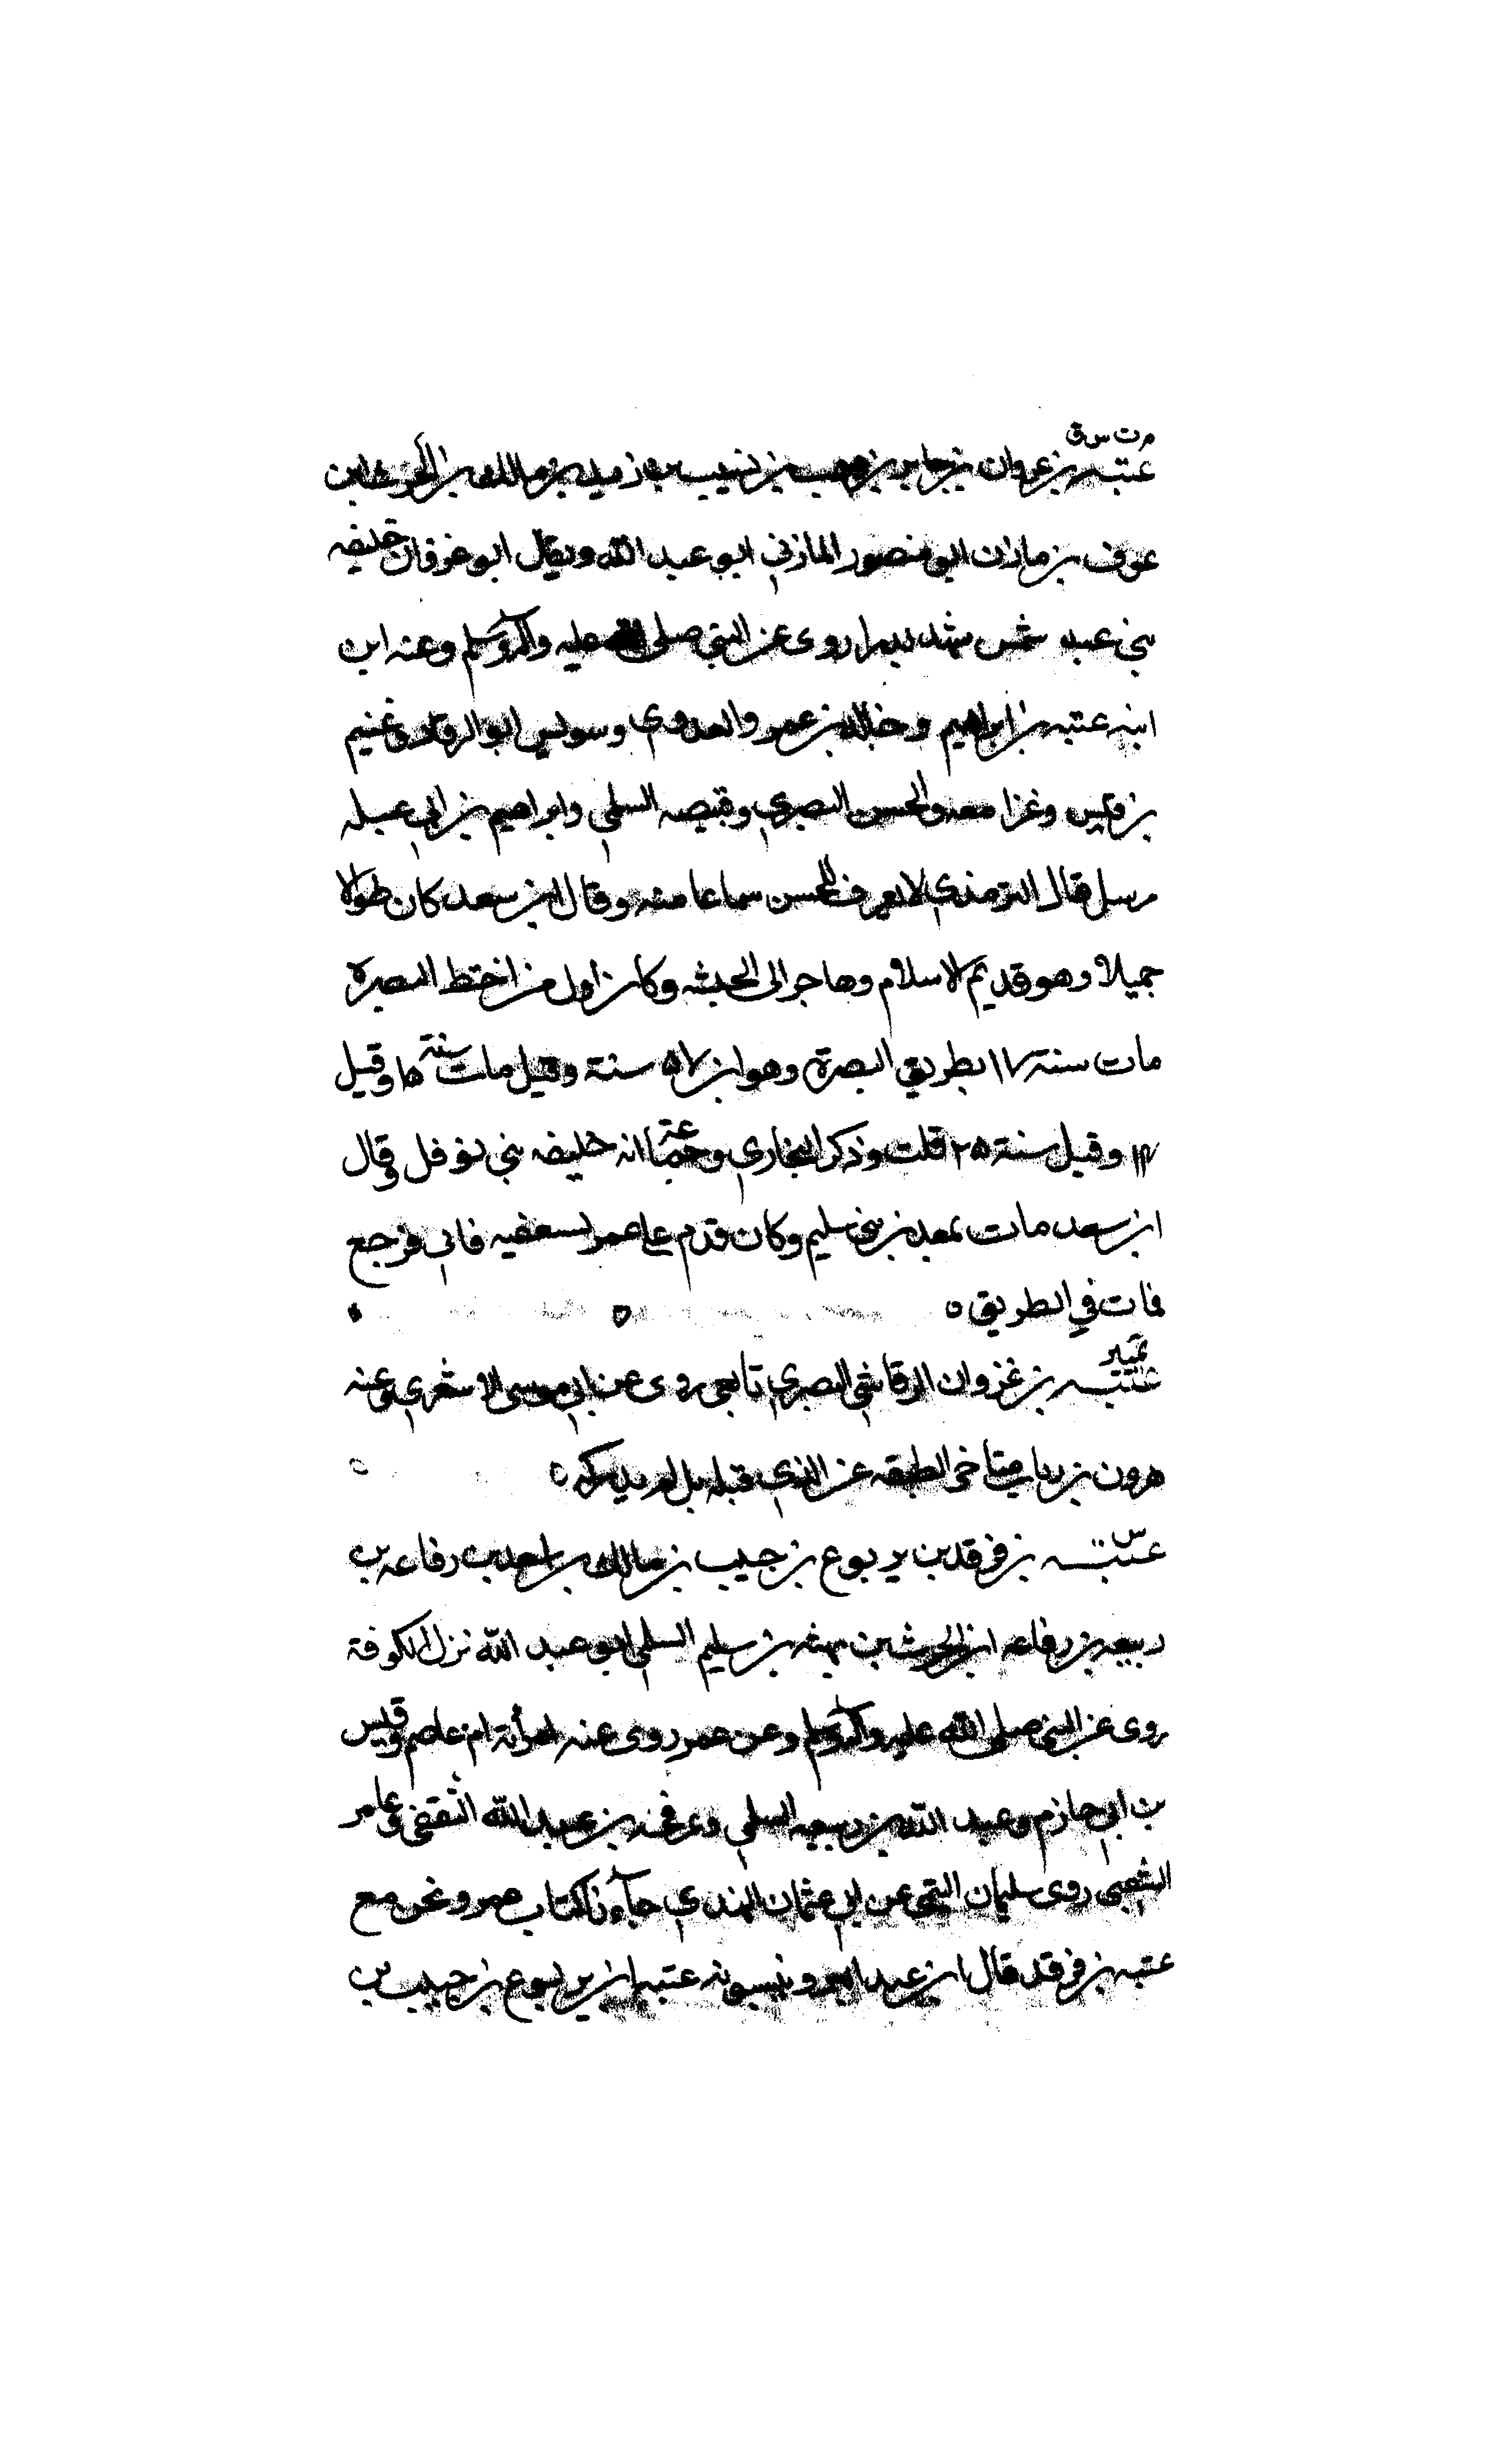 م ت س ق
عتبه بن غزوان بن جابر بن وهب بن نسيب بن زيد بن مالك بن الحرث ابن
عوف بن مازن ابو منصور المازني ابو عبد الله ويقال ابو غزوان حليف
بني عبد شمس شهد بدرا روى عن النبي صلى الله عليه وآله وسلم وعنه ابن
ابنه عتبه بن ابراهيم وخالد بن عمير والعدوي وسويس ابو الرقاد وغنيم
بن قيس وغزا معه والحسن البصري وقبيصه السلمي وابراهيم بن ابي عبله
مرسل قال الترمذي لا نعرف للحسن سماعا منه وقال ابن سعد كان طوالا
جميلا وهو قديم الاسلام وهاجر الى الحبشه وكان اول من اختط البصرة
مات سنة ١٧ بطريق البصرة وهو ابن ٥٧ سنة وقيل مات سنة ١٥ وقيل
١٤ وقيل سنة ٢٥ قلت وذكر البخاري انه حليف بني نوفل وقال
ابن سعد مات بمعدن بني سليم وكان قدم على عمر يستعفيه فابى فرجع
فمات في الطريق ٥
تمييز
عتبه بن غزوان الرقاشي البصري تابعي روى عن ابي موسى الاشعري وعنه
هرون بن رياب متاخر الطبقه عن الذي قبله بل لم يدركه ٥
س
عتبه بن فرقد بن يربوع بن حبيب بن مالك بن اسعد بن رفاعه بن
ربيعه بن رفاعه ابن الحرث بن بهثه بن سليم السلمي ابو عبد الله نزل الكوفة
روى عن النبي صلى الله عليه وآله وسلم وعن عمر روى عنه امرأته ام عاصم وقيس
بن ابي حازم وعبد الله بن ربيعه السلمي وعرفجه بن عبد الله الثقفي وعامر
الشعبي روى سليمان التيمي عن ابي عثمان النهدي جآءنا كتاب عمر ونحن مع
عتبه بن فرقد قال ابن عبد البر وينسبونه عتبه ابن يربوع بن حبيب بن